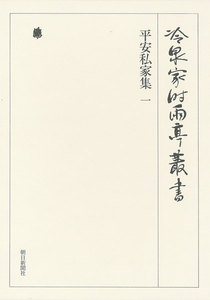 冷泉家時雨亭叢書
平安私家集 一
朝日新聞社